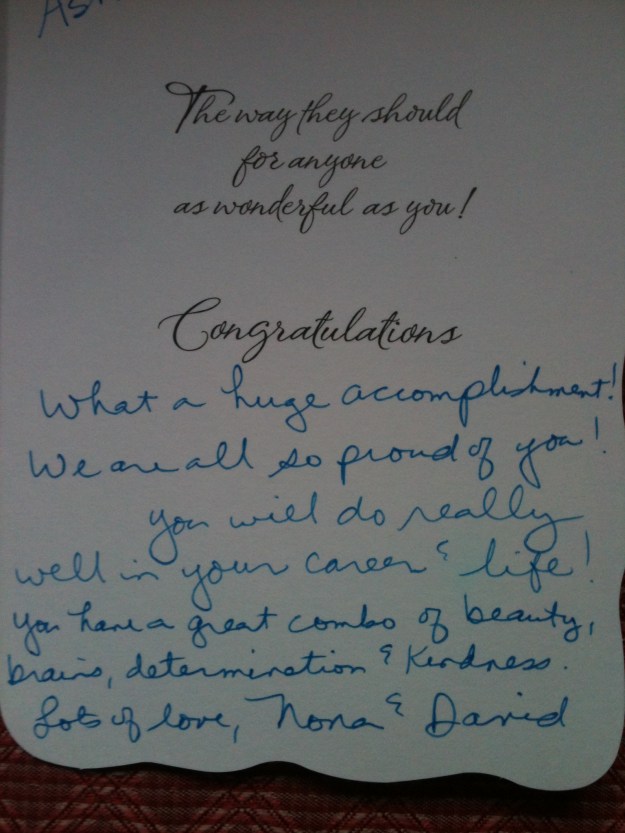 The way they should
for anyone
as wonderful as you!
Congratulations
What a huge accomplishment!
We are all so proud of you!
you will do really
well in your career & life!
you have a great combo of beauty,
brains, determination & Kindness.
Lots of love, Nona & David